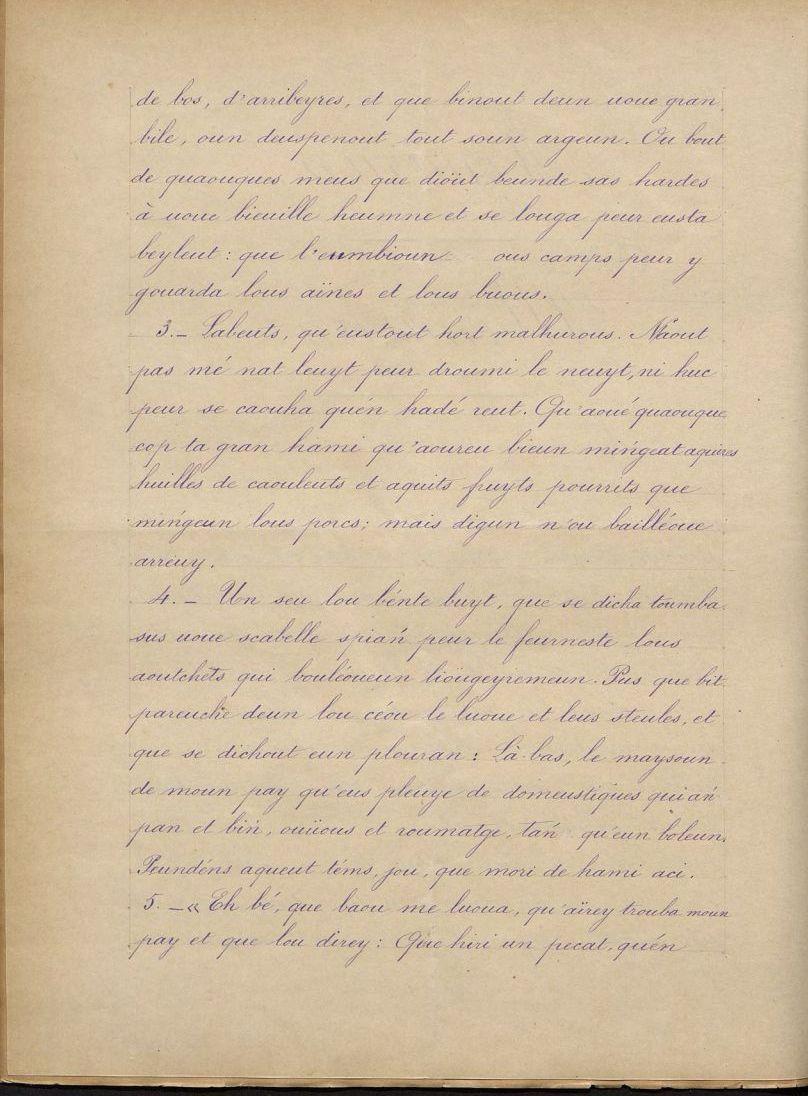 de bos, d'arribeyres, et que binout deun uoue gran
bile, oun deuspenout tout soun argeun. Ou bout
de quaouques meus que dioüt beunde sas hardes
à uoue bieuille heumne et se louga peur eusta
beyleut : que l'eumbioun ous camps peur y
gouarda lous aïnes et lous buous.
3. — Labeuts, qu'eustout hort malhurous. N'aout
pas mé nat leuyt peur droumi le neuyt, ni huc
peur se caouha quén hadé reut. Qu'aoué quaouque
cop ta gran hami qu'aoureu bieun mińgeat aquires
huilles de caouleuts et aquits fruyts pourrits que
mińgeun lous porcs; mais digun n'ou bailléoue
arreuy.
4. — Un seu lou bénte buyt, que se dicha toumba
sus uoue scabelle spiań peur le feurneste lous
aoutchets qui bouléoueun liougeyremeun. Pus que bit
pareuche deun lou céou le luoue et leus steules, et
que se dichout eun plouran : Là-bas, le maysoun
de moun pay qu'eus pleuye de domeustiques qui ań
pan et biń, ouïious et roumatge, tań qu'eun boleun.
Peundéns aqueut téms, jou, que mori de hami aci.
5. — « Eh bé, que baou me luoua, qu'aïrey trouba moun
pay et que lou direy : Que hiri un pecat, quén